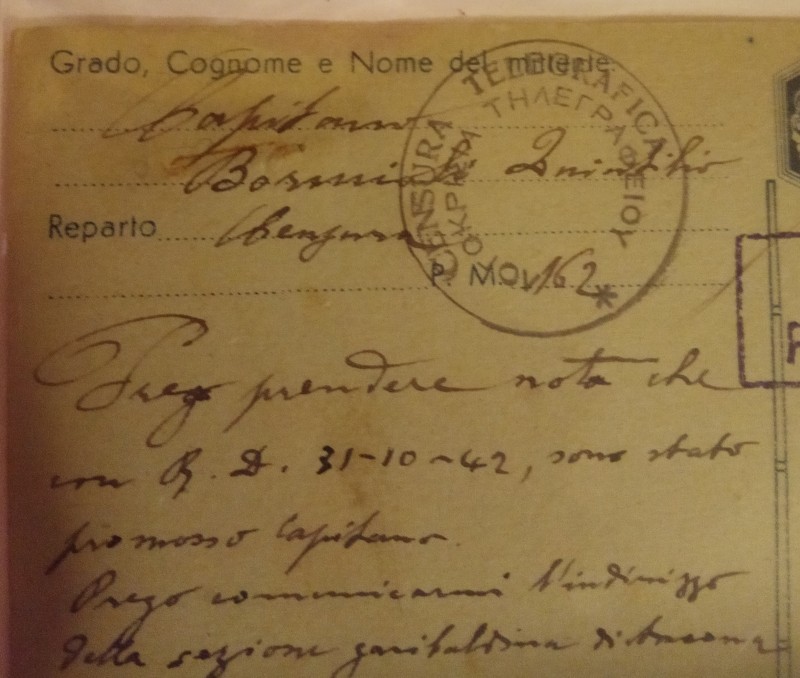 Grado, Cognome e Nome del militare:
Capitano
Quintilio
Reparto Censura
P. M. 162
CENSURA TELEGRAFICA
ΤΗΛΕΓΡΑΦΕΙΟΥ
Prego prendere nota che
con R. D. 31-10-42, sono stato
promosso Capitano.
Prego comunicarmi l'indirizzo
della sezione garibaldina di Ancona